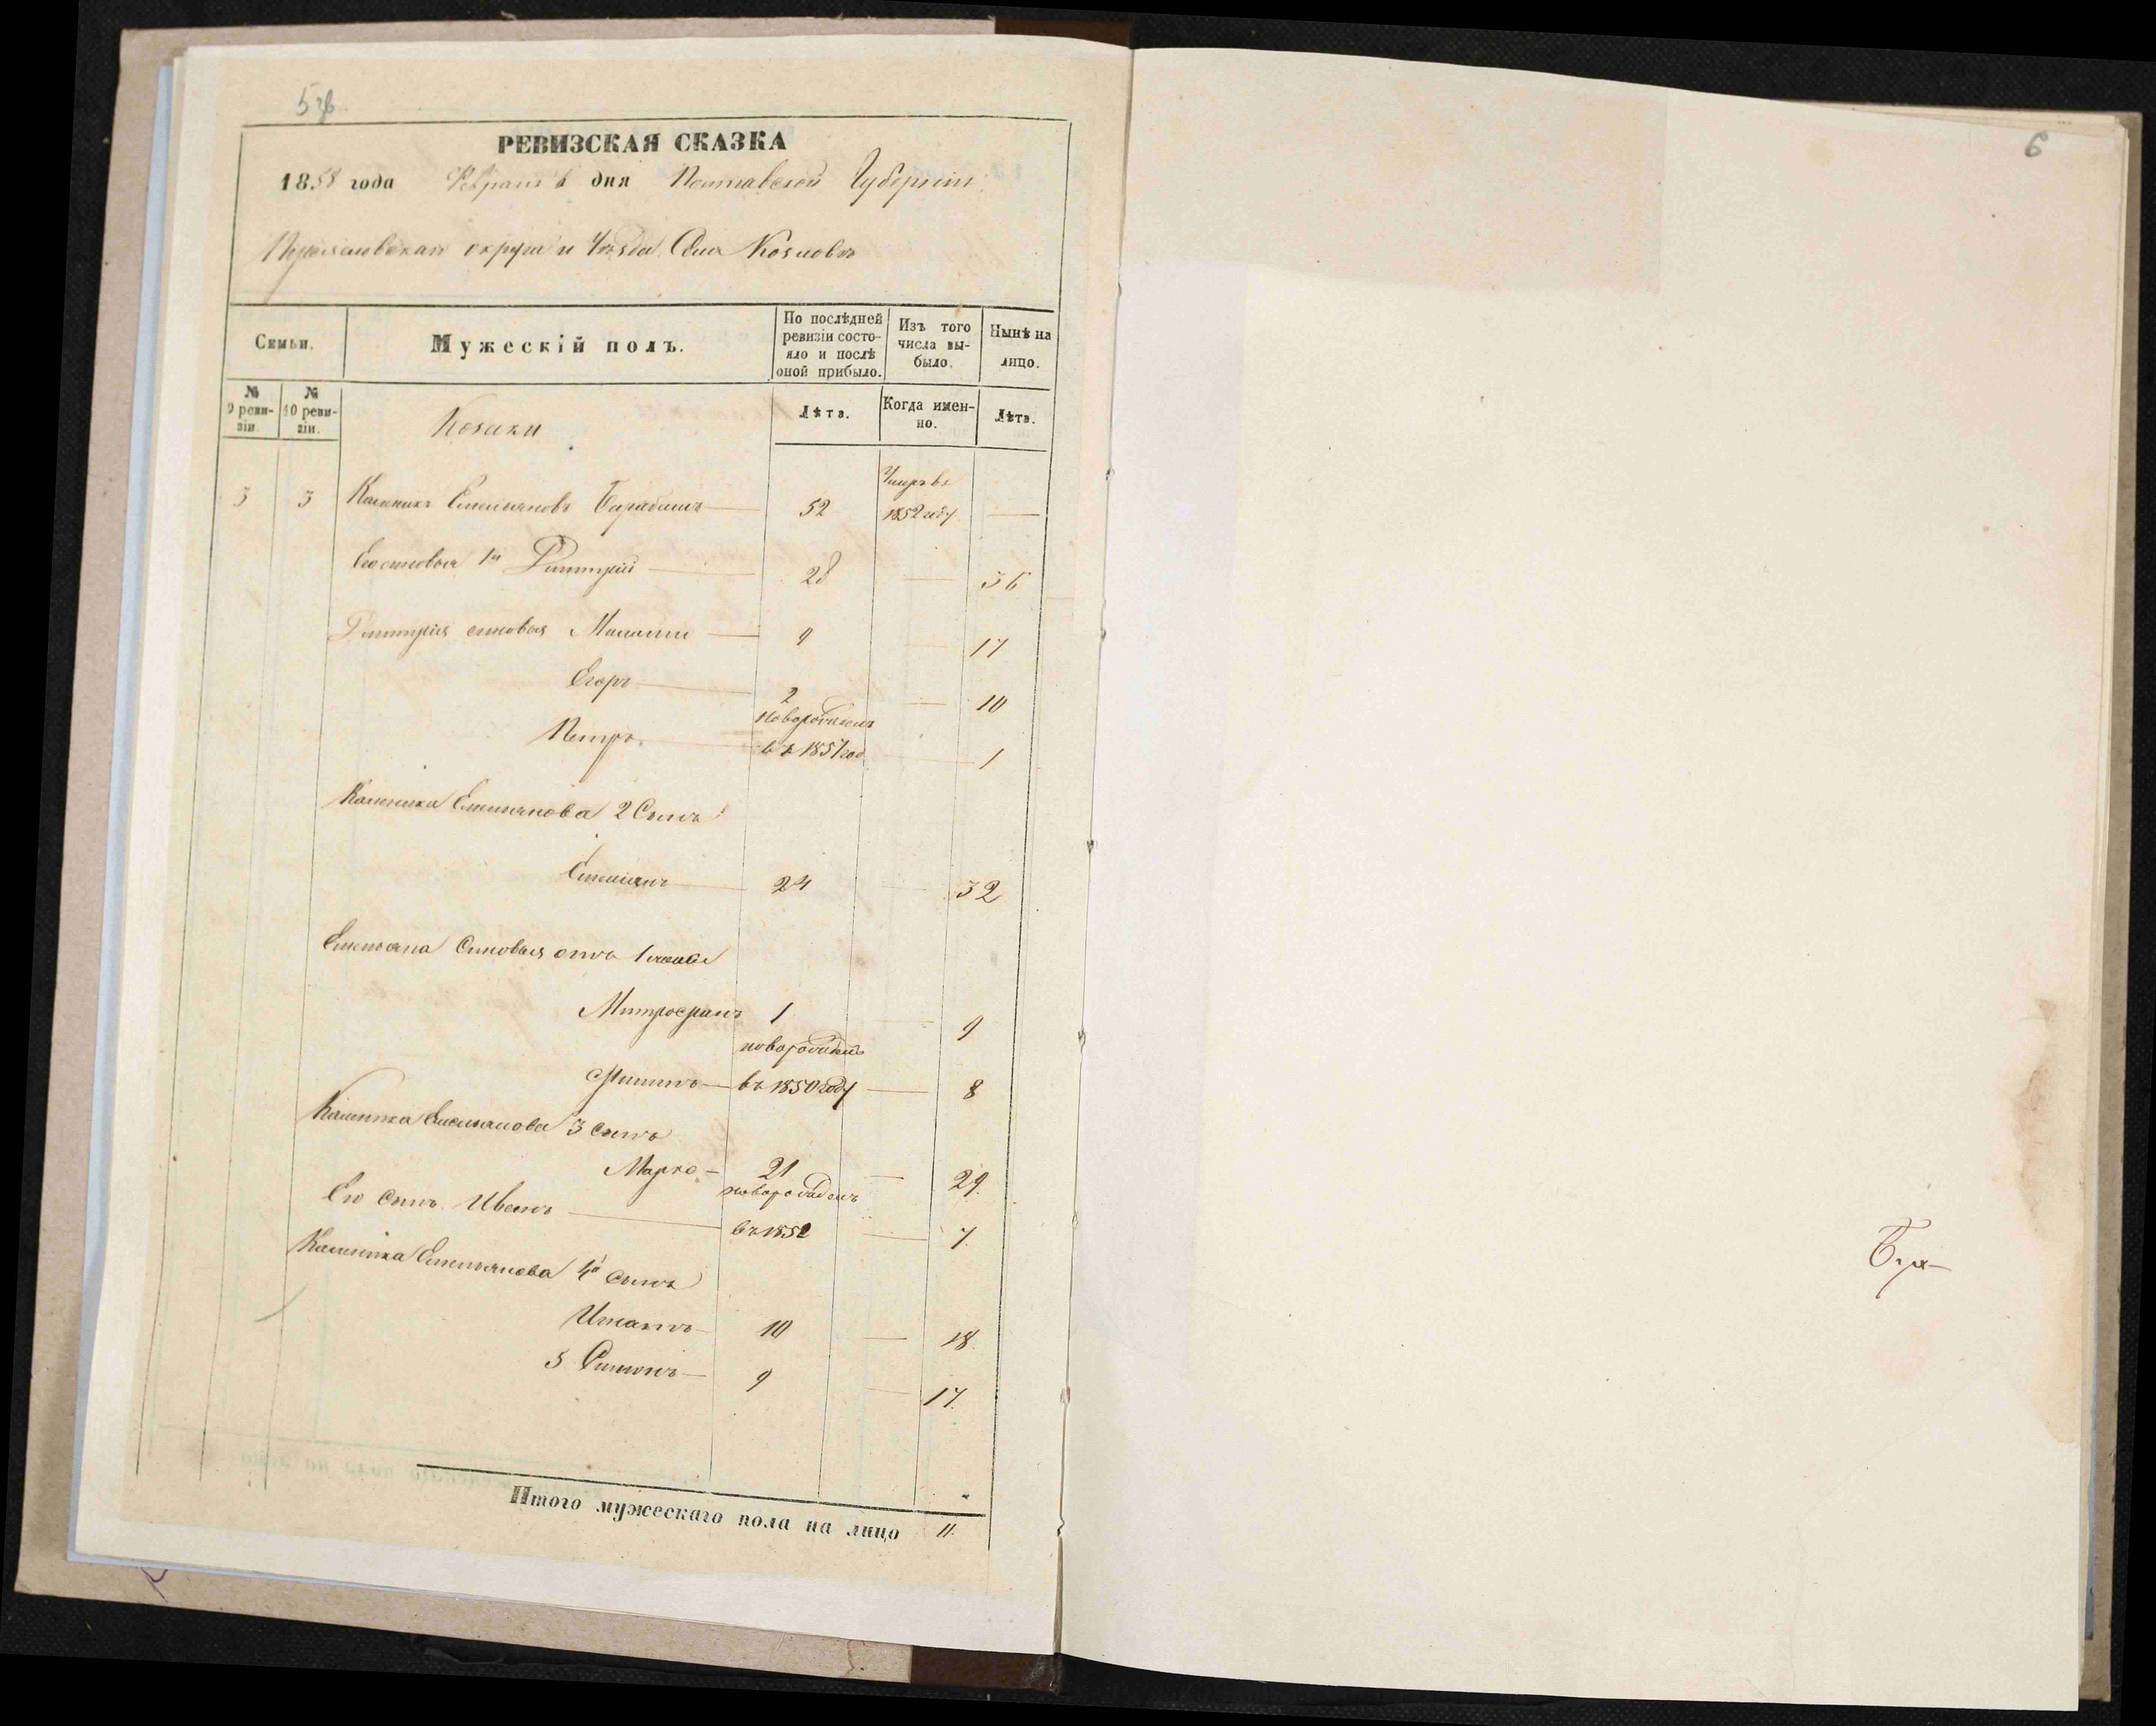 5зв
6
РЕВИЗСКАЯ СКАЗКА
1858 года Февраля 6 дня Полтавской Губерніи
округа и Уѣзда Села Козловъ
Семьи.
Мужескій полъ.
По послѣдней ревизіи состо-яло и послѣ оной прибыло.
Изъ того числа вы-было.
Нынѣ на лицо.
№ 9 реви-зіи
№ 10 реви-зіи.
Козаки
Лѣта.
Когда имен-но.
Лѣта.
3 3 Каленикъ Емельяновъ Барабашъ 52 Умеръ въ 1852 году
Его сыновья 1й Дмитрій 28 36
Дмитрія сыновья 9 17
Егоръ 2 10
Петръ новорожденъ въ 1857 год 1
Каленика Емельянова 2 Сынъ
Емельянъ 24 32
Емельяна Сыновья отъ 1 жены
Митрофанъ 1 9
новорожденъ въ 1850 году 8
Каленика Емельянова 3 Сынъ
Марко 21 29.
Его Сынъ Иванъ новорожденъ въ 1851 7.
Каленика Емельянова 4й сынъ
Игнатъ 10 18.
5 Симонъ 9 17.
Итого мужескаго пола на лицо 11.